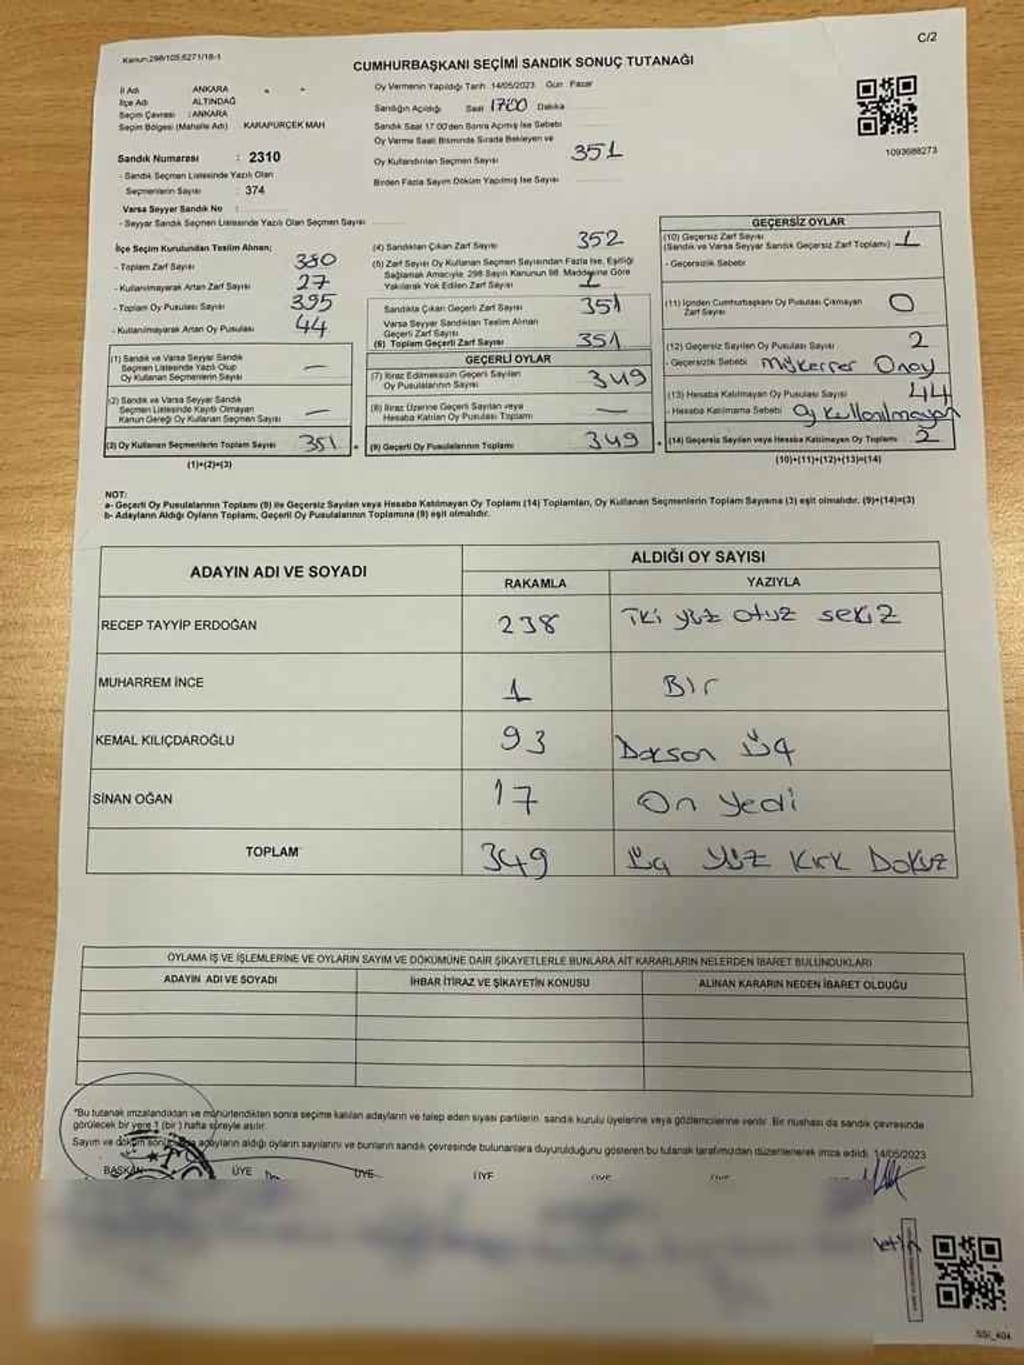 C/2
Kanun:298/105,6271/18-1
CUMHURBAŞKANI SEÇİMİ SANDIK SONUÇ TUTANAĞI
İl Adı ANKARA
İlçe Adı ALTINDAĞ
Seçim Çevresi : ANKARA
Seçim Bölgesi (Mahalle Adı) KARAPÜRÇEK MAH
Sandık Numarası : 2310
- Sandık Seçmen Listesinde Yazılı Olan
Seçmenlerin Sayısı : 374
Varsa Seyyar Sandık No
- Seyyar Sandık Seçmen Listesinde Yazılı Olan Seçmen Sayısı
Oy Vermenin Yapıldığı Tarih 14/05/2023 Gün Pazar
Sandığın Açıldığı Saat 17:00 Dakika
Sandık Saat 17:00'den Sonra Açılmış İse Sebebi
Oy Verme Saati Bitiminde Sırada Bekleyen ve
Oy Kullandırılan Seçmen Sayısı 351
Birden Fazla Sayım Döküm Yapılmış İse Sayısı
1093688273
İlçe Seçim Kurulundan Teslim Alınan;
- Toplam Zarf Sayısı 380
- Kullanılmayarak Artan Zarf Sayısı 27
- Toplam Oy Pusulası Sayısı 395
- Kullanılmayarak Artan Oy Pusulası 44
(1) Sandık ve Varsa Seyyar Sandık
Seçmen Listesinde Yazılı Olup
Oy Kullanan Seçmenlerin Sayısı —
(2) Sandık ve Varsa Seyyar Sandık
Seçmen Listesinde Kayıtlı Olmayan
Kanun Gereği Oy Kullanan Seçmen Sayısı —
(3) Oy Kullanan Seçmenlerin Toplam Sayısı 351
(1)+(2)=(3)
(4) Sandıktan Çıkan Zarf Sayısı 352
(5) Zarf Sayısı Oy Kullanan Seçmen Sayısından Fazla İse, Eşitliği
Sağlamak Amacıyla, 298 Sayılı Kanunun 98. Maddesine Göre
Yakılarak Yok Edilen Zarf Sayısı 1
Sandıkta Çıkan Geçerli Zarf Sayısı 351
Varsa Seyyar Sandıktan Teslim Alınan
Geçerli Zarf Sayısı
(6) Toplam Geçerli Zarf Sayısı 351
GEÇERLİ OYLAR
(7) İtiraz Edilmeksizin Geçerli Sayılan
Oy Pusulalarının Sayısı 349
(8) İtiraz Üzerine Geçerli Sayılan veya
Hesaba Katılan Oy Pusulası Toplamı —
(9) Geçerli Oy Pusulalarının Toplamı 349
GEÇERSİZ OYLAR
(10) Geçersiz Zarf Sayısı
(Sandık ve Varsa Seyyar Sandık Geçersiz Zarf Toplamı) 1
- Geçersizlik Sebebi
(11) İçinden Cumhurbaşkanı Oy Pusulası Çıkmayan
Zarf Sayısı 0
(12) Geçersiz Sayılan Oy Pusulası Sayısı 2
- Geçersizlik Sebebi Mükerrer Onay
(13) Hesaba Katılmayan Oy Pusulası Sayısı 44
- Hesaba Katılmama Sebebi Oy Kullanılmayan
(14) Geçersiz Sayılan veya Hesaba Katılmayan Oy Toplamı 2
(10)+(11)+(12)+(13)=(14)
NOT:
a- Geçerli Oy Pusulalarının Toplamı (9) ile Geçersiz Sayılan veya Hesaba Katılmayan Oy Toplamı (14) Toplamları, Oy Kullanan Seçmenlerin Toplam Sayısına (3) eşit olmalıdır. (9)+(14)=(3)
b- Adayların Aldığı Oyların Toplamı, Geçerli Oy Pusulalarının Toplamına (9) eşit olmalıdır.
ADAYIN ADI VE SOYADI
ALDIĞI OY SAYISI
RAKAMLA YAZIYLA
RECEP TAYYİP ERDOĞAN 238 iki yüz otuz sekiz
MUHARREM İNCE 1 Bir
KEMAL KILIÇDAROĞLU 93 Doksan Üç
SİNAN OĞAN 17 On yedi
TOPLAM 349 Üç yüz Kırk Dokuz
OYLAMA İŞ VE İŞLEMLERİNE VE OYLARIN SAYIM VE DÖKÜMÜNE DAİR ŞİKAYETLERLE BUNLARA AİT KARARLARIN NELERDEN İBARET BULUNDUKLARI
ADAYIN ADI VE SOYADI İHBAR İTİRAZ VE ŞİKAYETİN KONUSU ALINAN KARARIN NEDEN İBARET OLDUĞU
*Bu tutanak imzalandıktan ve mühürlendikten sonra seçime katılan adayların ve talep eden siyasi partilerin, sandık kurulu üyelerine veya gözlemcilerine verilir. Bir nüshası da sandık çevresinde
görülecek bir yere 1 (bir) hafta süreyle asılır.
Sayım ve döküm adayların aldığı oyların sayılarını ve bunların sandık çevresinde bulunanlara duyurulduğunu gösteren bu tutanak tarafımızdan düzenlenerek imza edildi. 14/05/2023
BAŞKAN ÜYE ÜYE ÜYE ÜYE ÜYE
SSI_404